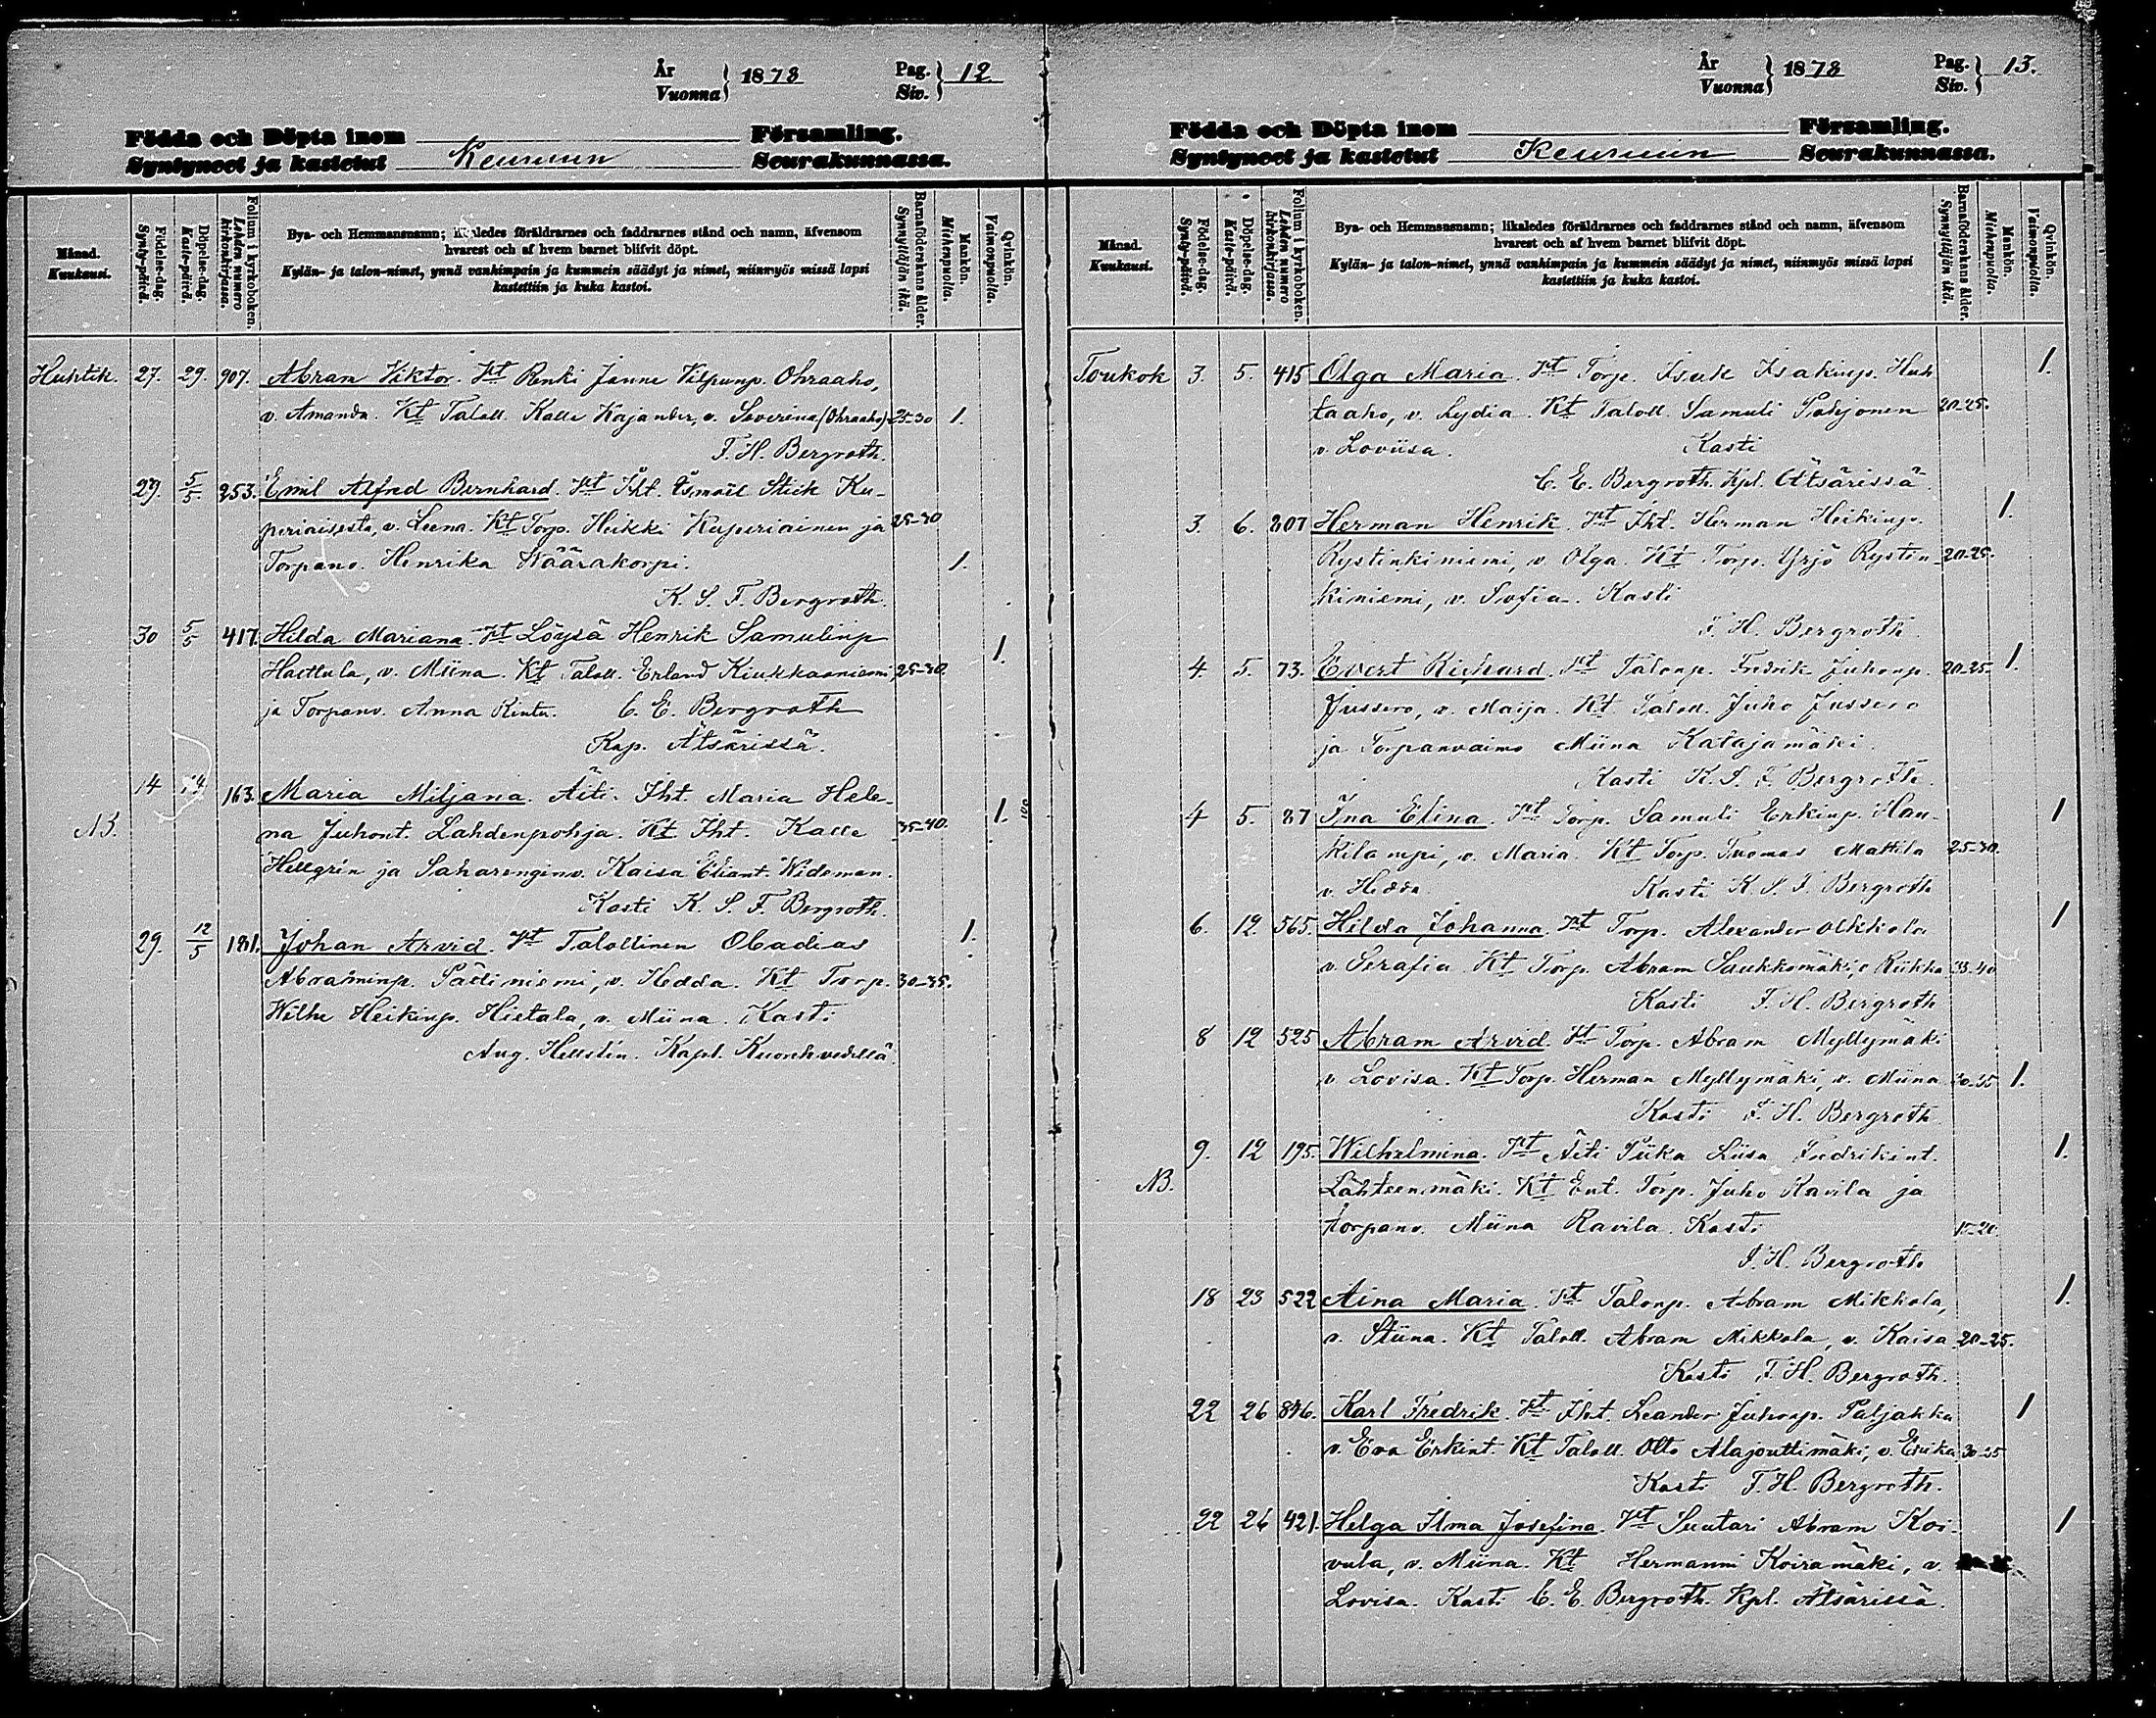 År
Vuonna } 1878 Pag.
Siv. } 12.
Födda och Döpta inom Församling.
Syntyneet ja kastetut Keuruun Seurakunnassa.
Månad.
Kuukausi.
Födelse-dag.
Synty-päivä.
Döpelse-dag.
Kaste-päivä.
Folium i kyrkoboken.
Lehden numero kirkonkirjassa.
Bya- och Hemmansnamn; likaledes föräldrarnes och faddrarnes stånd och namn, äfvensom
hvarest och af hvem barnet blifvit döpt.
Kylän- ja talon-nimet, ynnä vanhimpain ja kummein säädyt ja nimet, niinmyös missä lapsi
kastettiin ja kuka kastoi.
Barnaföderskans ålder.
Synnyttäjän ikä.
Mankön.
Miehenpuolia.
Qvinkön.
Vaimonpuolia.
Huhtik. 27. 29. 907. Abram Viktor. Vt Renki Janne Vilpunp. Ohraaho,
v. Amanda. Kt Taloll. Kalle Kajander, v. Severina (Ohraaho) 25-30 1.
F. H. Bergroth.
29. 5/5 253. Emil Alfred Bernhard. Vt Iht. Ismaël Stick Ku-
periaisesta, v. Leena. Kt Torp. Heikki Kuperiainen ja 25-30
Torpanv. Henrika Väärakorpi. 1.
K. S. F. Bergroth.
30 5/5 417. Hilda Mariana. Vt Löysä Henrik Samulinp
Hattula, v. Miina. Kt Taloll. Erland Kiukkaaniemi 25-30. 1.
ja Torpanv. Anna Kintu. C. E. Bergroth
Kap. Ätsärissä.
14 14 163. Maria Miljana. Äiti. Iht. Maria Hele-
NB. na Juhont. Lahdenpohja. Kt Iht. Kalle 35-40. 1.
Hellgrén ja Saharenginv. Kaisa Eliant. Wideman.
Kasti K. S. F. Bergroth.
29. 12/5 181. Johan Arvid. Vt Talollinen Obadias 1.
Abraminp. Pätiniemi, v. Hedda. Kt Torp. 30-35.
Wilhe Heikinp. Hietala, v. Miina. Kasti
Aug. Hellstén. Kapl. Kuorehvedellä.
År
Vuonna } 1878 Pag.
Siv. } 13.
Födda och Döpta inom Församling.
Syntyneet ja kastetut Keuruun Seurakunnassa.
Månad.
Kuukausi.
Födelse-dag.
Synty-päivä.
Döpelse-dag.
Kaste-päivä.
Folium i kyrkoboken.
Lehden numero kirkonkirjassa.
Bya- och Hemmansnamn; likaledes föräldrarnes och faddrarnes stånd och namn, äfvensom
hvarest och af hvem barnet blifvit döpt.
Kylän- ja talon-nimet, ynnä vanhimpain ja kummein säädyt ja nimet, niinmyös missä lapsi
kastettiin ja kuka kastoi.
Barnaföderskans ålder.
Synnyttäjän ikä.
Mankön.
Miehenpuolia.
Qvinkön.
Vaimonpuolia.
Toukok 3. 5. 415 Olga Maria. Vt Torp. Isak Isakinp. Huh 1.
taaho, v. Lydia. Kt Taloll. Samuli Pohjonen 20-25.
v. Loviisa. Kasti
C. E. Bergroth. Kpl. Ätsärissä.
3. 6. 807 Herman Henrik. Vt Iht. Herman Heikinp. 1.
Rystinkiniemi, v Olga. Kt Torp. Yrjö Rystin- 20-25.
kiniemi, v. Sofia. Kasti
F. H. Bergroth.
4. 5. 73. Evert Richard. Vt Talonp. Fredrik Juhonp. 20-25. 1.
Jussero, v. Maija. Kt Taloll. Juho Jussero
ja Torpanvaimo Miina Katajamäki.
Kasti K. S. F. Bergroth.
4 5. 87 Ina Elina. Vt Torp. Samuli Erkinp. Hau- 1
kilampi, v. Maria. Kt Torp. Tuomas Mattila 25-30.
v. Hedda. Kasti K. S. F. Bergroth
6. 12 565. Hilda Johanna. Vt Torp. Alexander Olkkola 1
v. Serafia Kt Torp. Abram Saukkomäki, v Riikka 35-40
Kasti F. H. Bergroth
8 12 525 Abram Arvid. Vt Torp. Abram Myllymäki
v Lovisa. Kt Torp. Herman Myllymäki, v. Miina 30-35 1.
Kasti F. H. Bergroth.
9. 12 195. Wilhelmina. Vt Äiti Piika Liisa Fredrikint. 1.
NB. Lähteenmäki. Kt Ent. Torp. Juho Ravila ja
torpanv. Miina Ravila. Kasti 15-20.
F. H. Bergroth
18 23 522 Aina Maria. Vt Talonp. Abram Mikkola, 1.
v. Stiina. Kt Taloll. Abram Mikkola, v. Kaisa 20-25.
Kasti F. H. Bergroth.
22 26 846. Karl Fredrik. Vt Iht. Leander Juhonp. Paljakka 1
v. Eva Erkint. Kt Taloll. Otto Alajouttimäki, v. Erika 30-35
Kasti F. H. Bergroth.
22 26 421. Helga Ilma Josefina. Vt Suutari Abram Koi- 1
vula, v. Miina. Kt Hermanni Koiramäki, v.
Lovisa. Kasti C. E. Bergroth. Kpl. Ätsärissä.